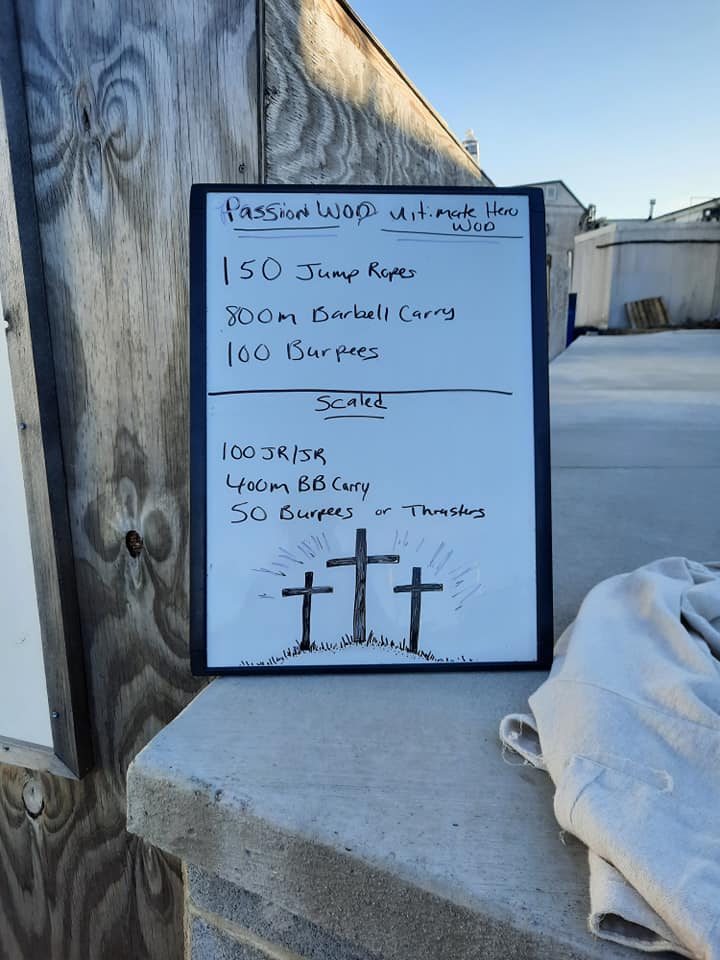 Passion WOD Ultimate Hero
WOD
150 Jump Ropes
800m Barbell Carry
100 Burpees
Scaled
100 JR/JR
400m BB Carry
50 Burpees or Thrusters